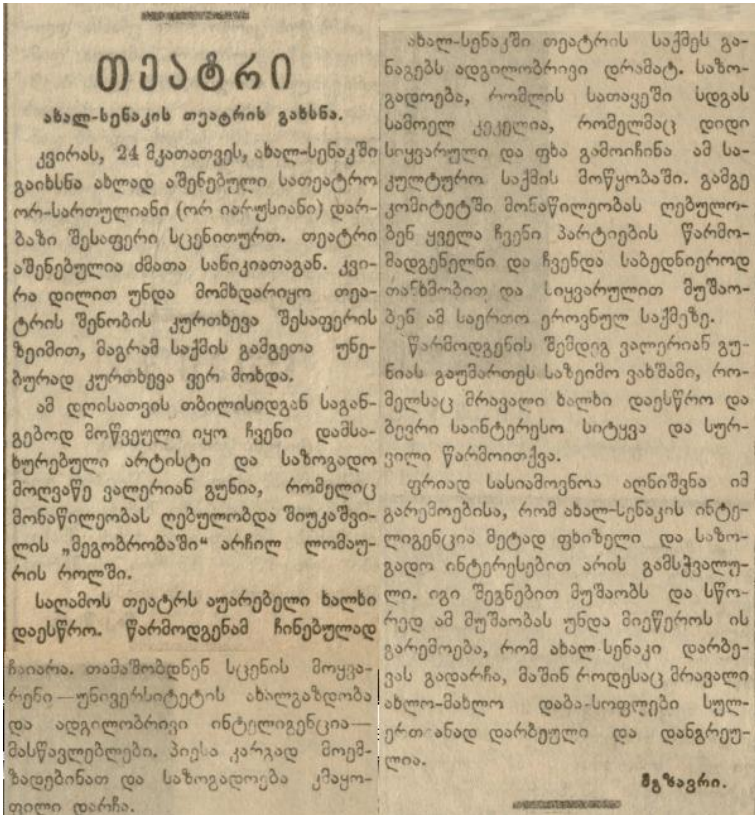 თეატრი
ახალ-სენაკის თეატრის გახსნა.
კვირას, 24 მკათათვეს, ახალ-სენაკში
გაიხსნა ახლად აშენებული სათეატრო
ორ-სართულიანი (ორ იარუსიანი) დარ-
ბაზი შესაფერი სცენითურთ. თეატრი
აშენებულია ძმათა სანიკიათაგან. კვი-
რა დილით უნდა მომხდარიყო თეა-
ტრის შენობის კურთხევა შესაფერის
ზეიმით, მაგრამ საქმის გამგეთა უნე-
ბურად კურთხევა ვერ მოხდა.
ამ დღისათვის თბილისიდგან საგან-
გებოდ მოწვეული იყო ჩვენი დამსა-
ხურებული არტისტი და საზოგადო
მოღვაწე ვალერიან გუნია, რომელიც
მონაწილეობას ღებულობდა შიუკაშვი-
ლის „მეგობრობაში“ არჩილ ლომაუ-
რის როლში.
საღამოს თეატრს აუარებელი ხალხი
დაესწრო. წარმოდგენამ ჩინებულად
ჩაიარა. თამაშობდნენ სცენის მოყვა-
რენი—უნივერსიტეტის ახალგაზდობა
და ადგილობრივი ინტელიგენცია—
მასწავლებლები. პიესა კარგად მოემ-
ზადებინათ და საზოგადოება კმაყო-
ფილი დარჩა.
ახალ-სენაკში თეატრის საქმეს გა-
ნაგებს ადგილობრივი დრამატ. საზო-
გადოება, რომლის სათავეში სდგას
სამოელ კეკელია, რომელმაც დიდი
სიყვარული და ფხა გამოიჩინა ამ სა-
კულტურო საქმის მოწყობაში. გამგე
კომიტეტში მონაწილეობას ღებულო-
ბენ ყველა ჩვენი პარტიების წარმო-
მადგენელნი და ჩვენდა საბედნიეროდ
თანხმობით და სიყვარულით მუშაო-
ბენ ამ საერთო ეროვნულ საქმეზე.
წარმოდგენის შემდეგ ვალერიან გუ-
ნიას გაუმართეს საზეიმო ვახშამი, რო-
მელსაც მრავალი ხალხი დაესწრო და
ბევრი საინტერესო სიტყვა და სურ-
ვილი წარმოითქვა.
ფრიად სასიამოვნოა აღნიშვნა იმ
გარემოებისა, რომ ახალ-სენაკის ინტე-
ლიგენცია მეტად ფხიზელი და საზო-
გადო ინტერესებით არის გამსჭვალუ-
ლი. იგი შეგნებით მუშაობს და სწო-
რედ ამ მუშაობას უნდა მიეწეროს ის
გარემოება, რომ ახალ-სენაკი დარბე-
ვას გადარჩა, მაშინ როდესაც მრავალი
ახლო-მახლო დაბა-სოფლები სულ-
ერთ ანად დარბეული და დანგრეუ-
ლია.
მგზავრი.